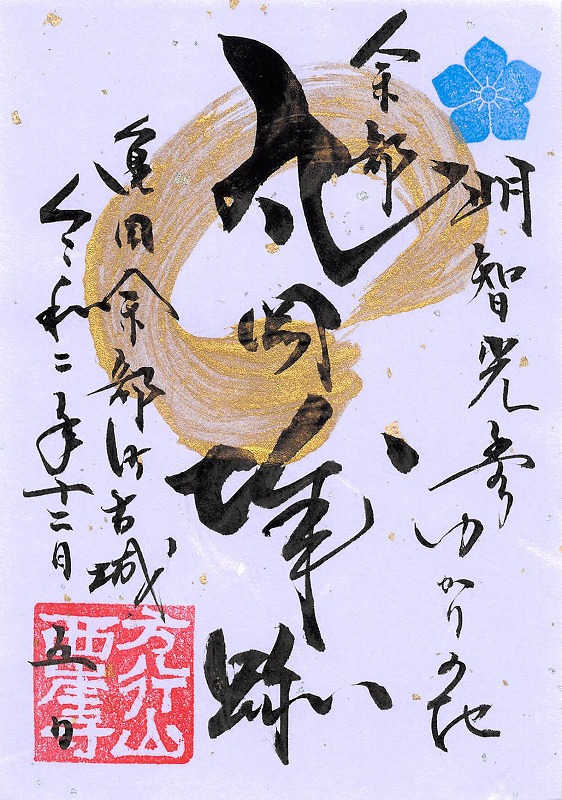 明智光秀ゆかりの地
余部
丸岡城跡
亀岡余部町古城
令和二年十二月五日
万行山
西岸寺